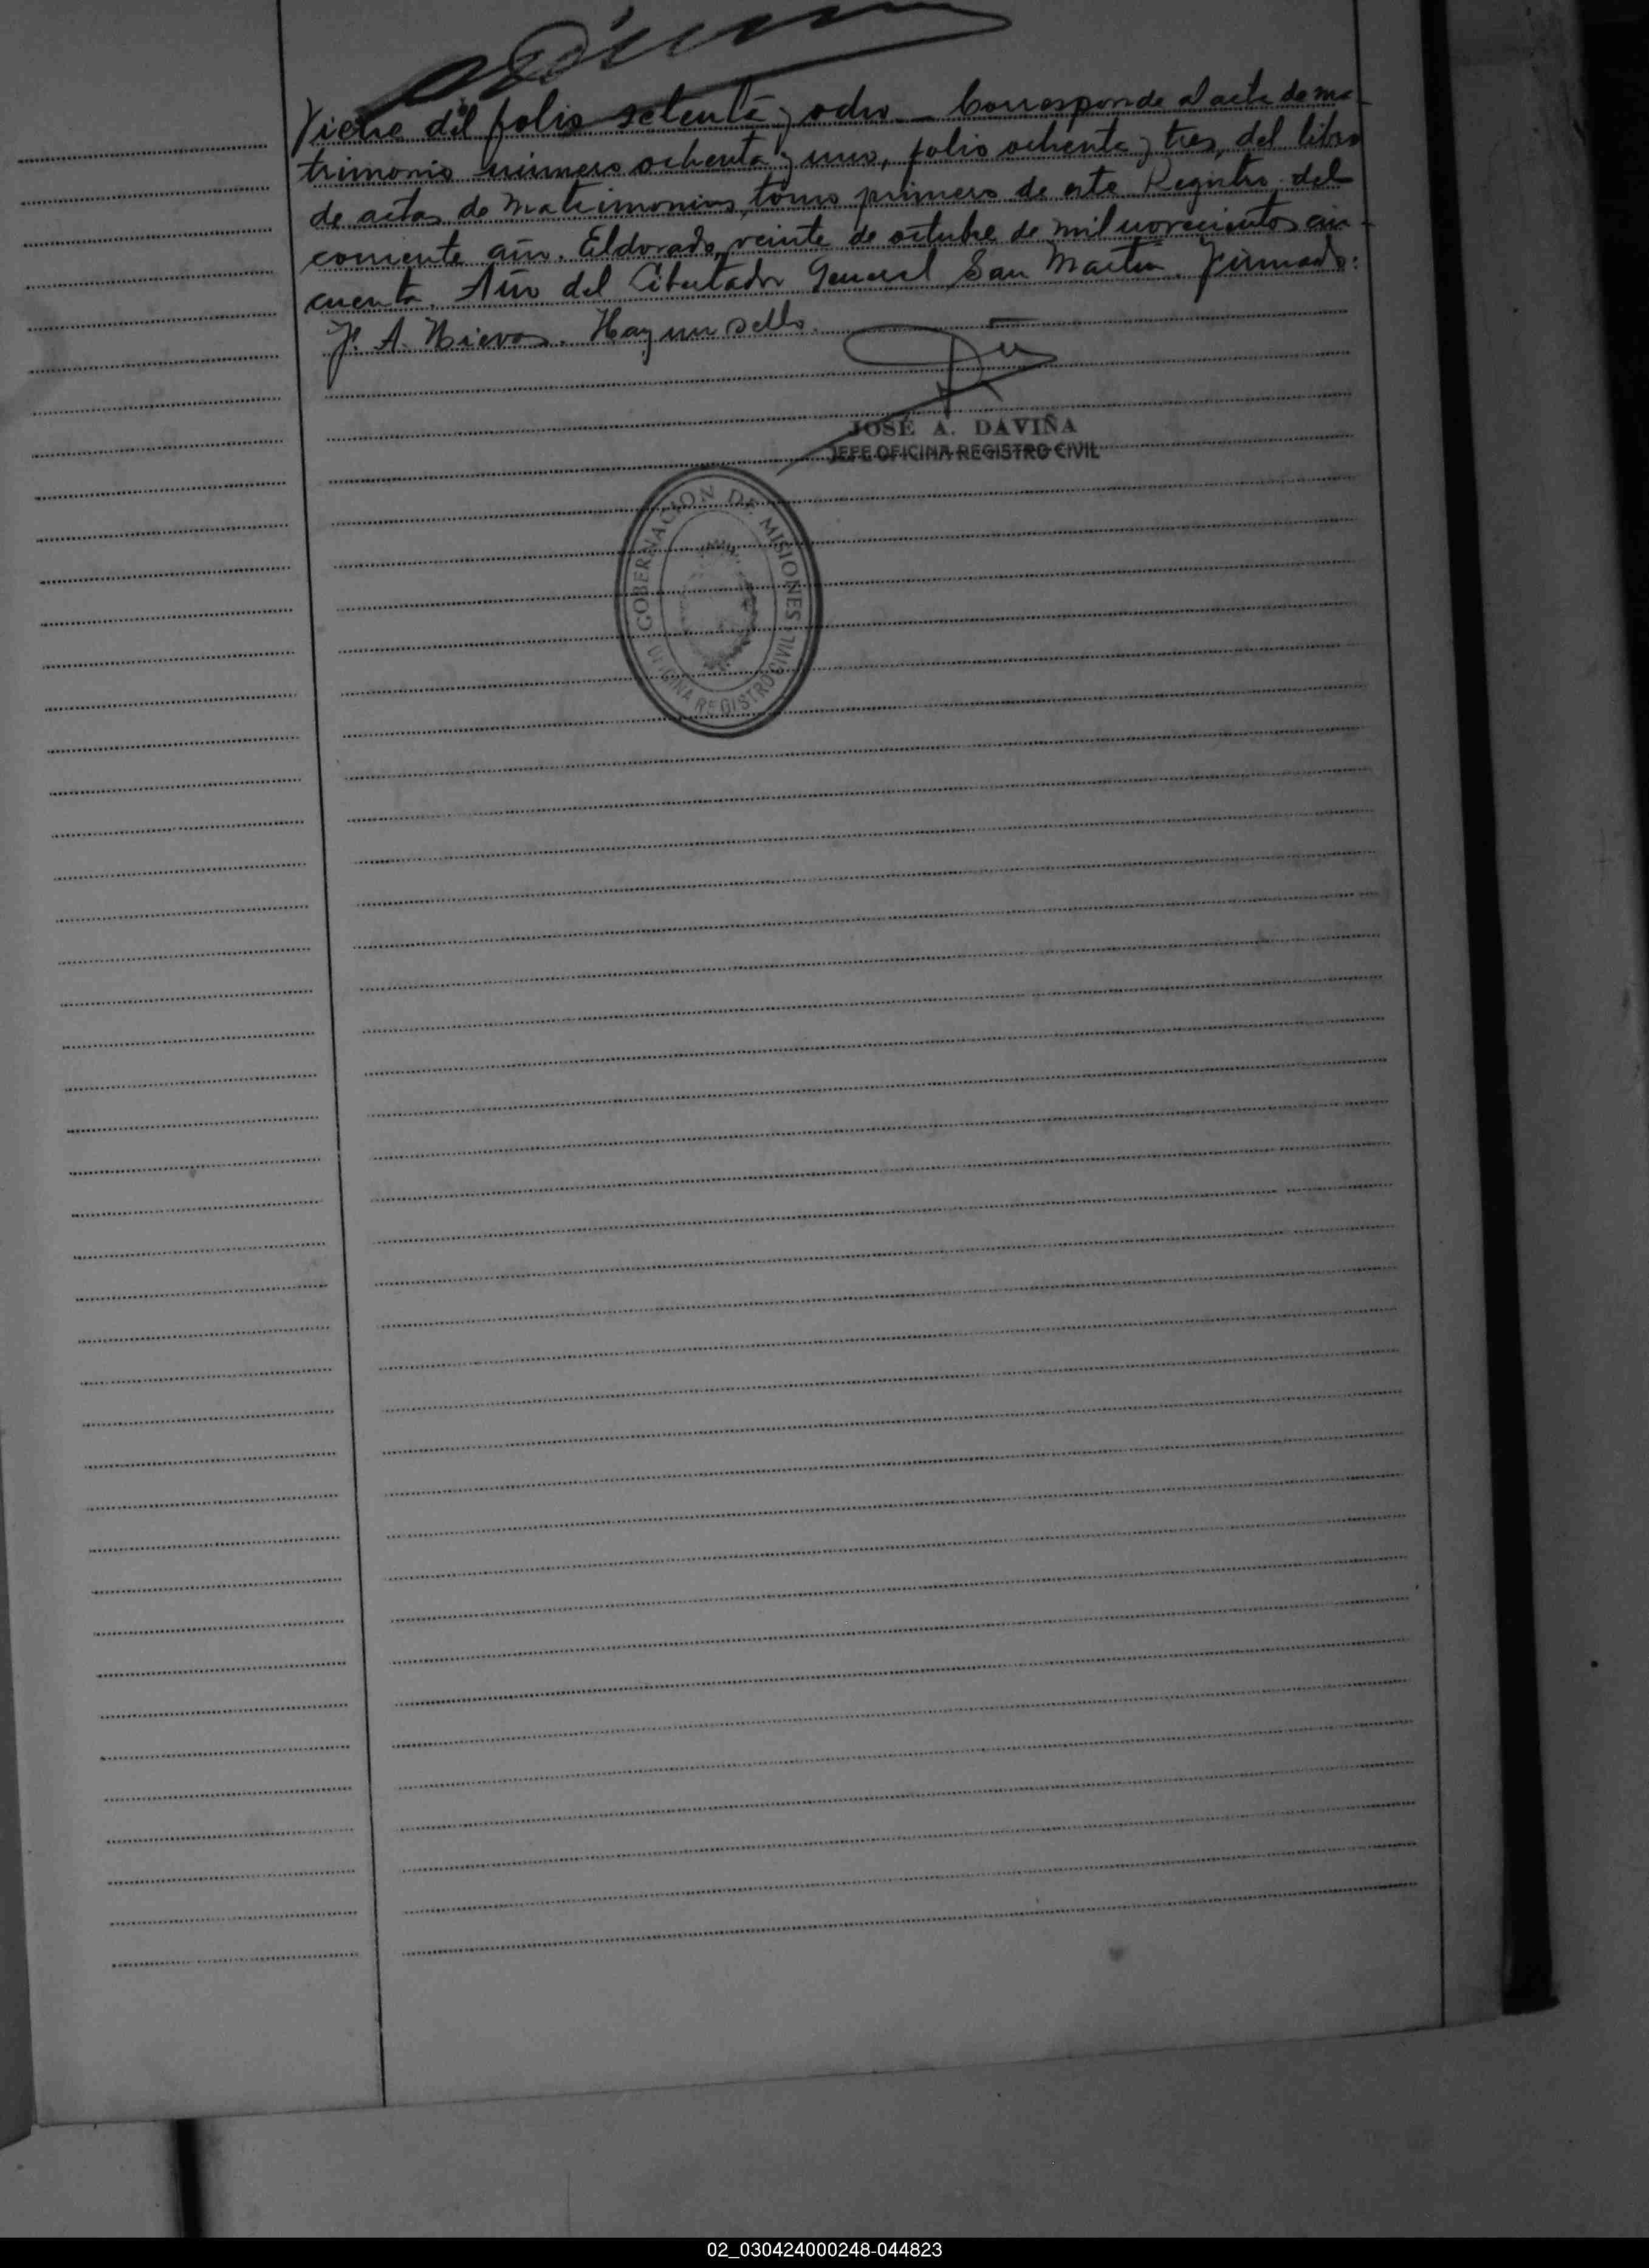 Viene del folio setenta y ocho _ Corresponde al acta de ma-
trimonio número ochenta y uno, folio ochenta y tres, del libro
de actas de Matrimonios, tomo primero de este Registro del
corriente año. Eldorado, veinte de octubre de mil novecientos cin-
cuenta. Año del Libertador General San Martín. Firmado:
J. A. Nieves. Hay un sello.
JOSÉ A. DAVIÑA
JEFE OFICINA REGISTRO CIVIL
GOBERNACION DE MISIONES
OFICINA REGISTRO CIVIL
02_030424000248-044823